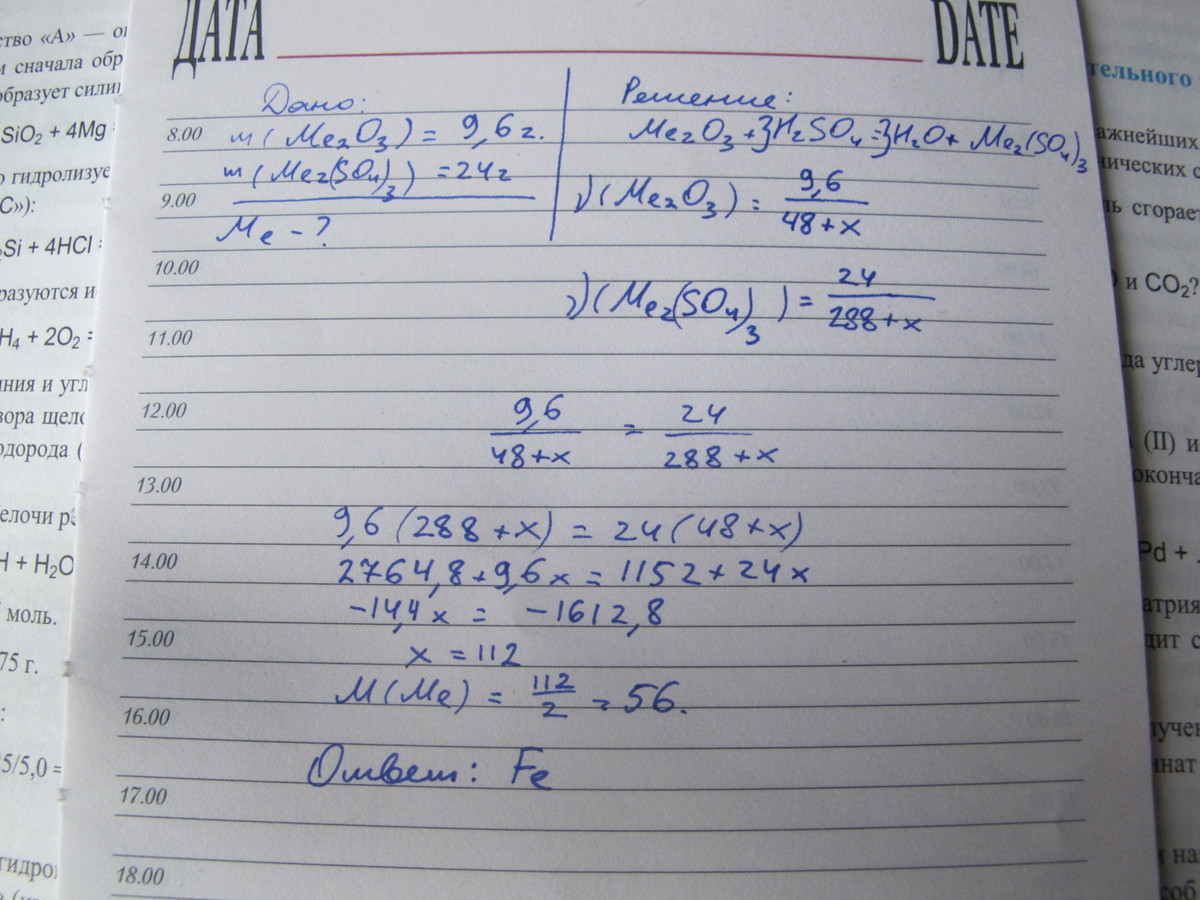 ДАТА DATE
ство «А» — о
и сначала обр
образует сили
SiO₂ + 4Mg =
о гидролизуе
С»):
₂Si + 4HCl =
разуются и
H₄ + 2O₂ =
ния и угл
вора щело
одорода (
елочи р
H + H₂O
моль.
75 г.
:
5/5,0 =
гидро
Дано:
m(Me₂O₃) = 9,6 г.
m(Me₂(SO₄)₃) = 24г
Me - ?
Решение:
Me₂O₃ + 3H₂SO₄ = 3H₂O + Me₂(SO₄)₃
ν(Me₂O₃) = 9,6 / 48+x
ν(Me₂(SO₄)₃) = 24 / 288+x
9,6 / 48+x = 24 / 288+x
9,6(288+x) = 24(48+x)
2764,8+9,6x = 1152+24x
-14,4x = -1612,8
x = 112
M(Me) = 112 / 2 = 56.
Ответ: Fe
8.00
9.00
10.00
11.00
12.00
13.00
14.00
15.00
16.00
17.00
18.00
тельного
ажнейших
нических с
ь сгорает
и CO₂?
да углер
(II) и
оконча
Pd +
атрия
дит с
лучен
инат
и на
соб